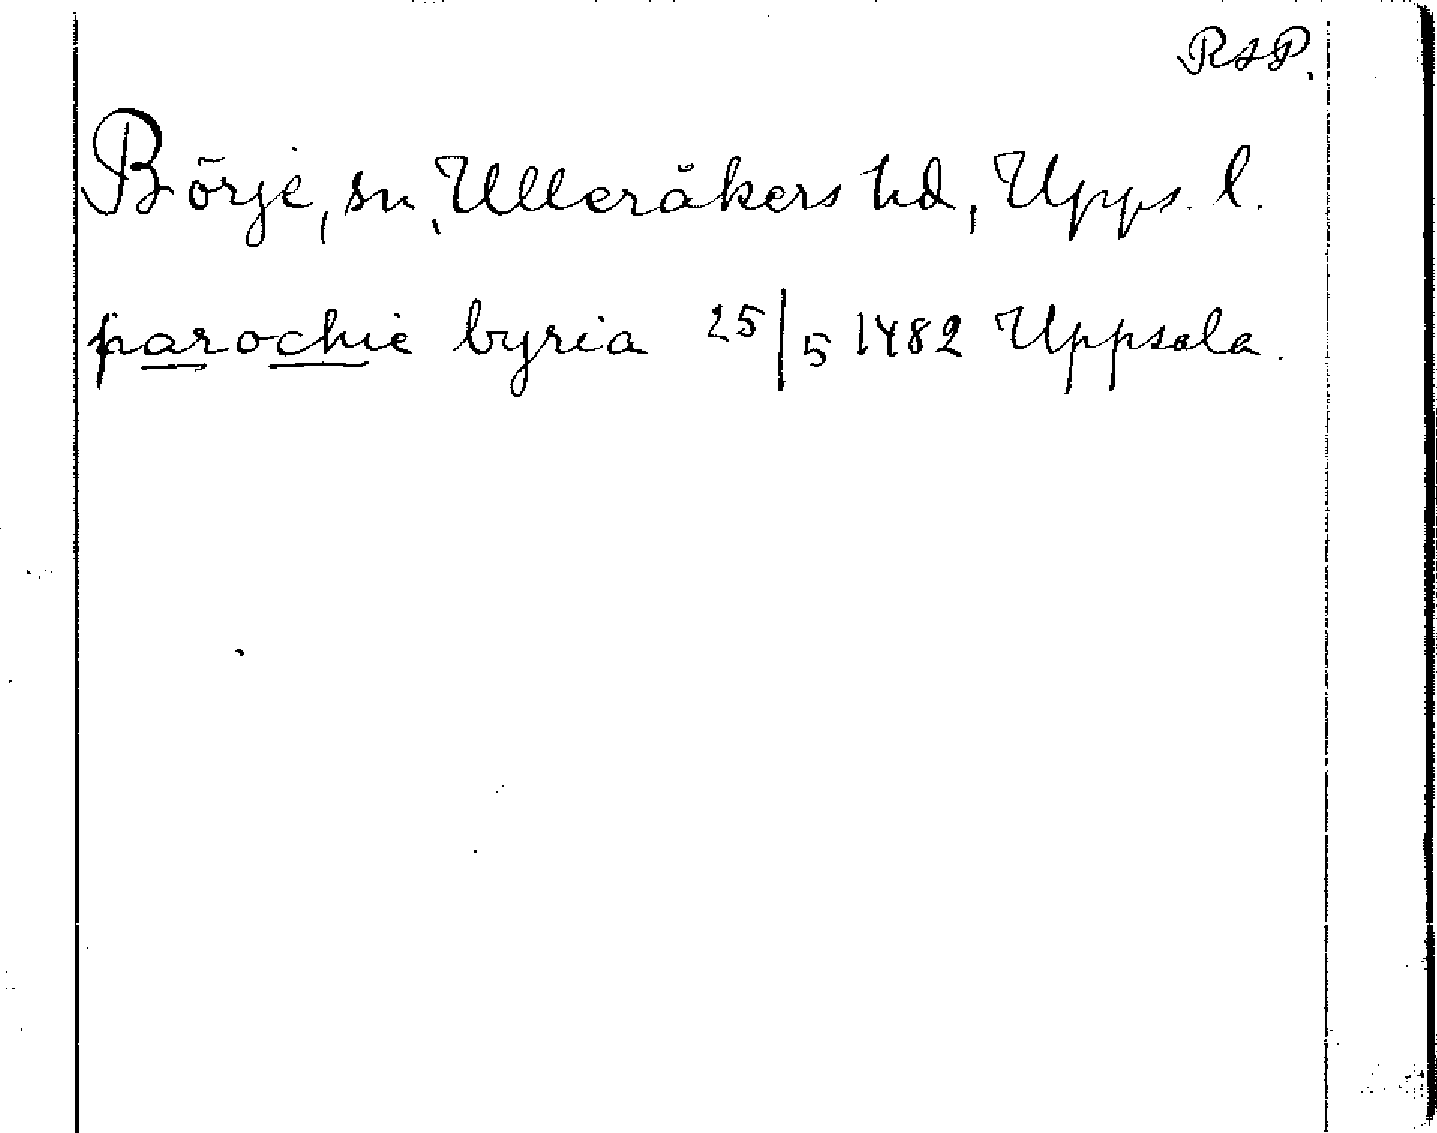 RAP.
Börje, sn, Ulleråkers hd, Upps. l.
parochie byria 25/5 1482 Uppsala.